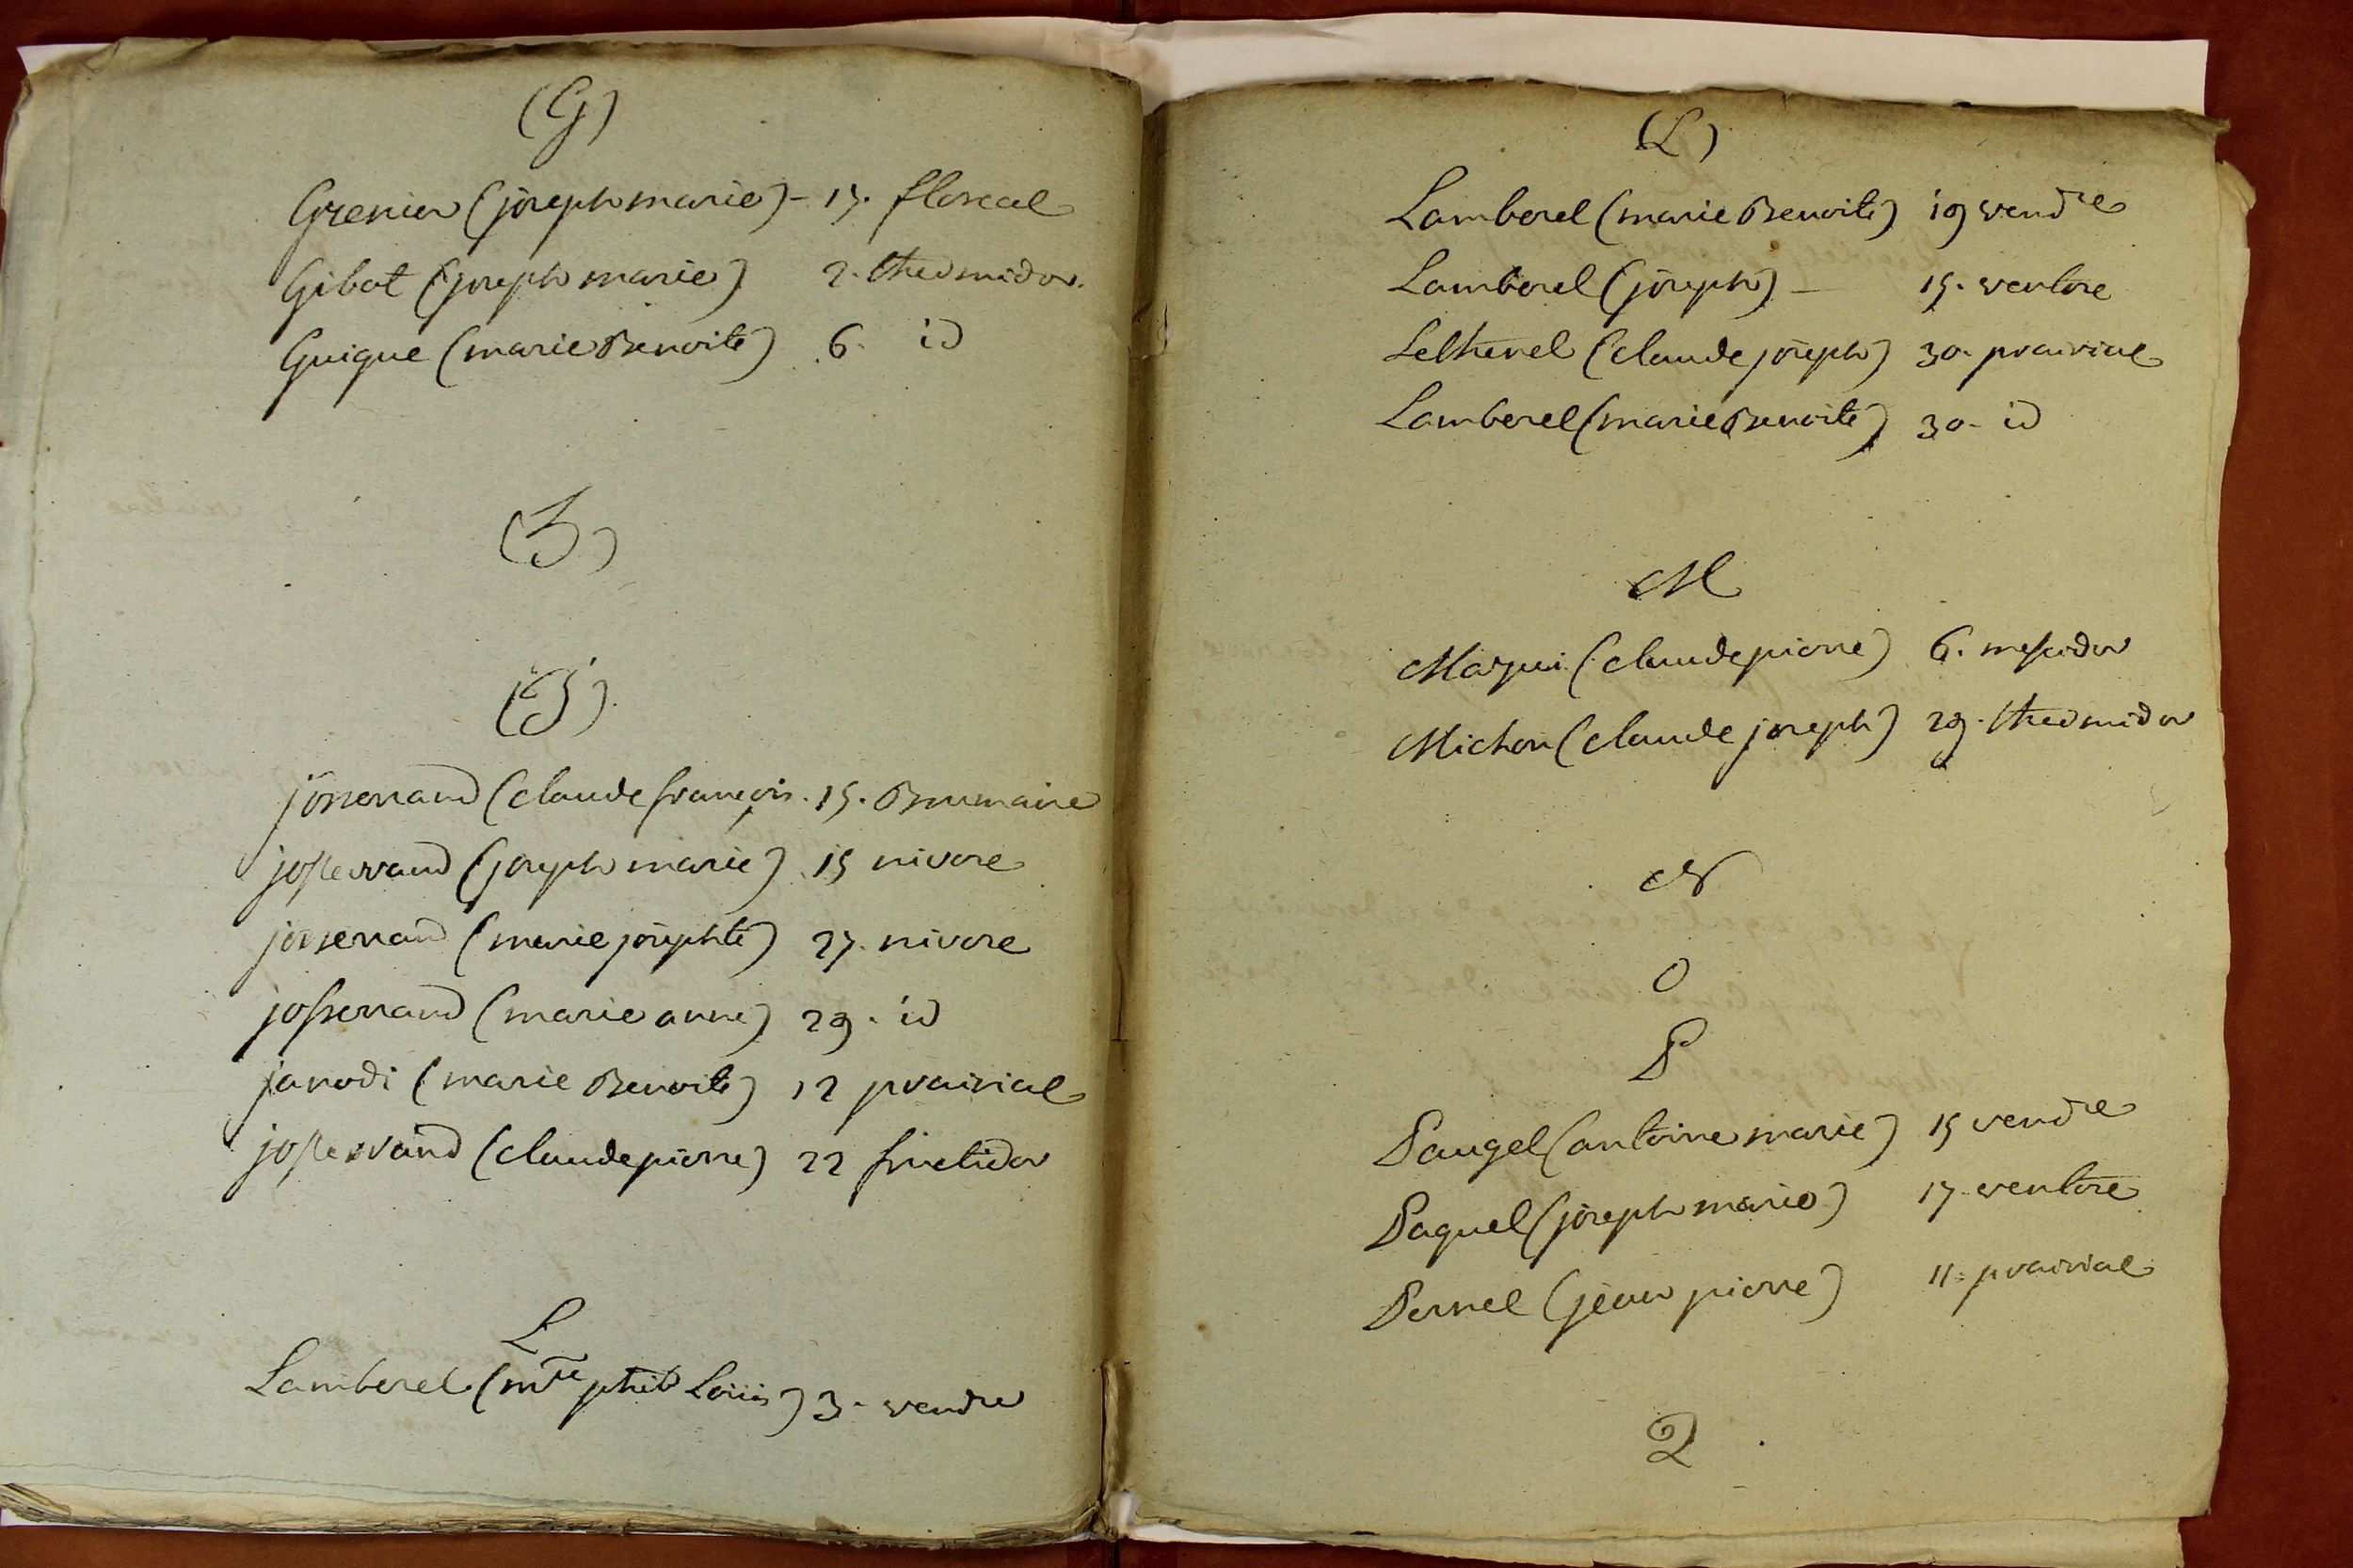 (G)
Grenier (joseph marie) - 15. floreal
Gibot (joseph marie) 2. thermidor.
Guigue (marie Benoite) 6. id
(J)
jösserrand (claude françois. 15. Brumaire
josserrand (joseph marie) 15 nivose
josserrand (marie josephte) 27. nivose
josserrand (marie anne) 29. id
janodi (marie Benoite) 12 prairial
josserrand (claude pierre) 22 fructidor
L
Lamberel (mie phil Loüis) 3. vendre
(L)
Lamberel (marie Benoite) 19 vendre
Lamberel (joseph) - 15. ventose
Lethenel (claude joseph) 30. prairial
Lamberel (marie Benoite) 30. id
M
(claude pierre) 6. messidor
Michon (claude joseph) 29. thermidor
N
O
P
Paugel (antoine marie) 15 vendre
Paquel (joseph marie) 17. ventose
Pernel (jean pierre) 11. prairial
Q